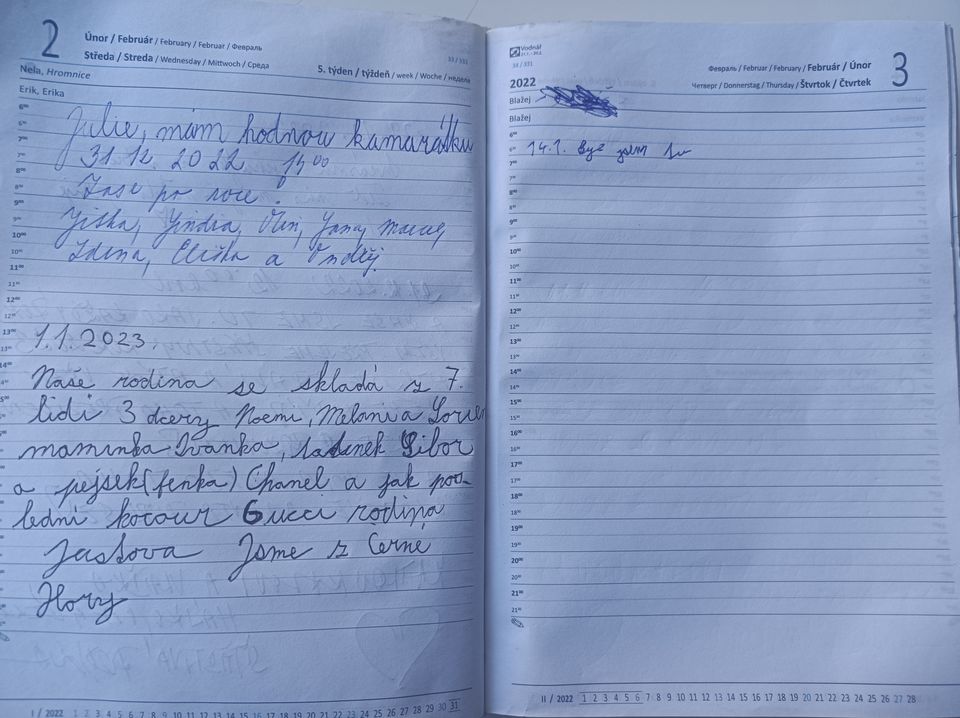 2
Únor / Február / February / Februar / Февраль
Středa / Streda / Wednesday / Mittwoch / Среда
5. týden / týždeň / week / Woche / неделя
33 / 331
Nela, Hromnice
Erik, Erika
Julie, mám hodnou kamarádku
31. 12. 2022
Zase po roce.
Jiška, Jindra, Olin, Jana, Marcel,
Zdena, Eliška a Ondřej.
1.1.2023.
Naše rodina se skládá z 7.
lidi 3 dcery Noemi, Melani a
maminka Ivanka, Libor
a pejsek (fenka) Chanel a jak pos-
lední kocour Gucci rodina
Jsme z Černé
Hory
I / 2022 1 2 3 4 5 6 7 8 9 10 11 12 13 14 15 16 17 18 19 20 21 22 23 24 25 26 27 28 29 30 31
Vodnář
2022
Февраль / Februar / February / Február / Únor
Четверг / Donnerstag / Thursday / Štvrtok / Čtvrtek
3
Blažej
Blažej
14.1. Byl jsem
6⁰⁰
7⁰⁰
8⁰⁰
9⁰⁰
10⁰⁰
11⁰⁰
12⁰⁰
13⁰⁰
14⁰⁰
15⁰⁰
16⁰⁰
17⁰⁰
18⁰⁰
19⁰⁰
20⁰⁰
21⁰⁰
II / 2022 1 2 3 4 5 6 7 8 9 10 11 12 13 14 15 16 17 18 19 20 21 22 23 24 25 26 27 28